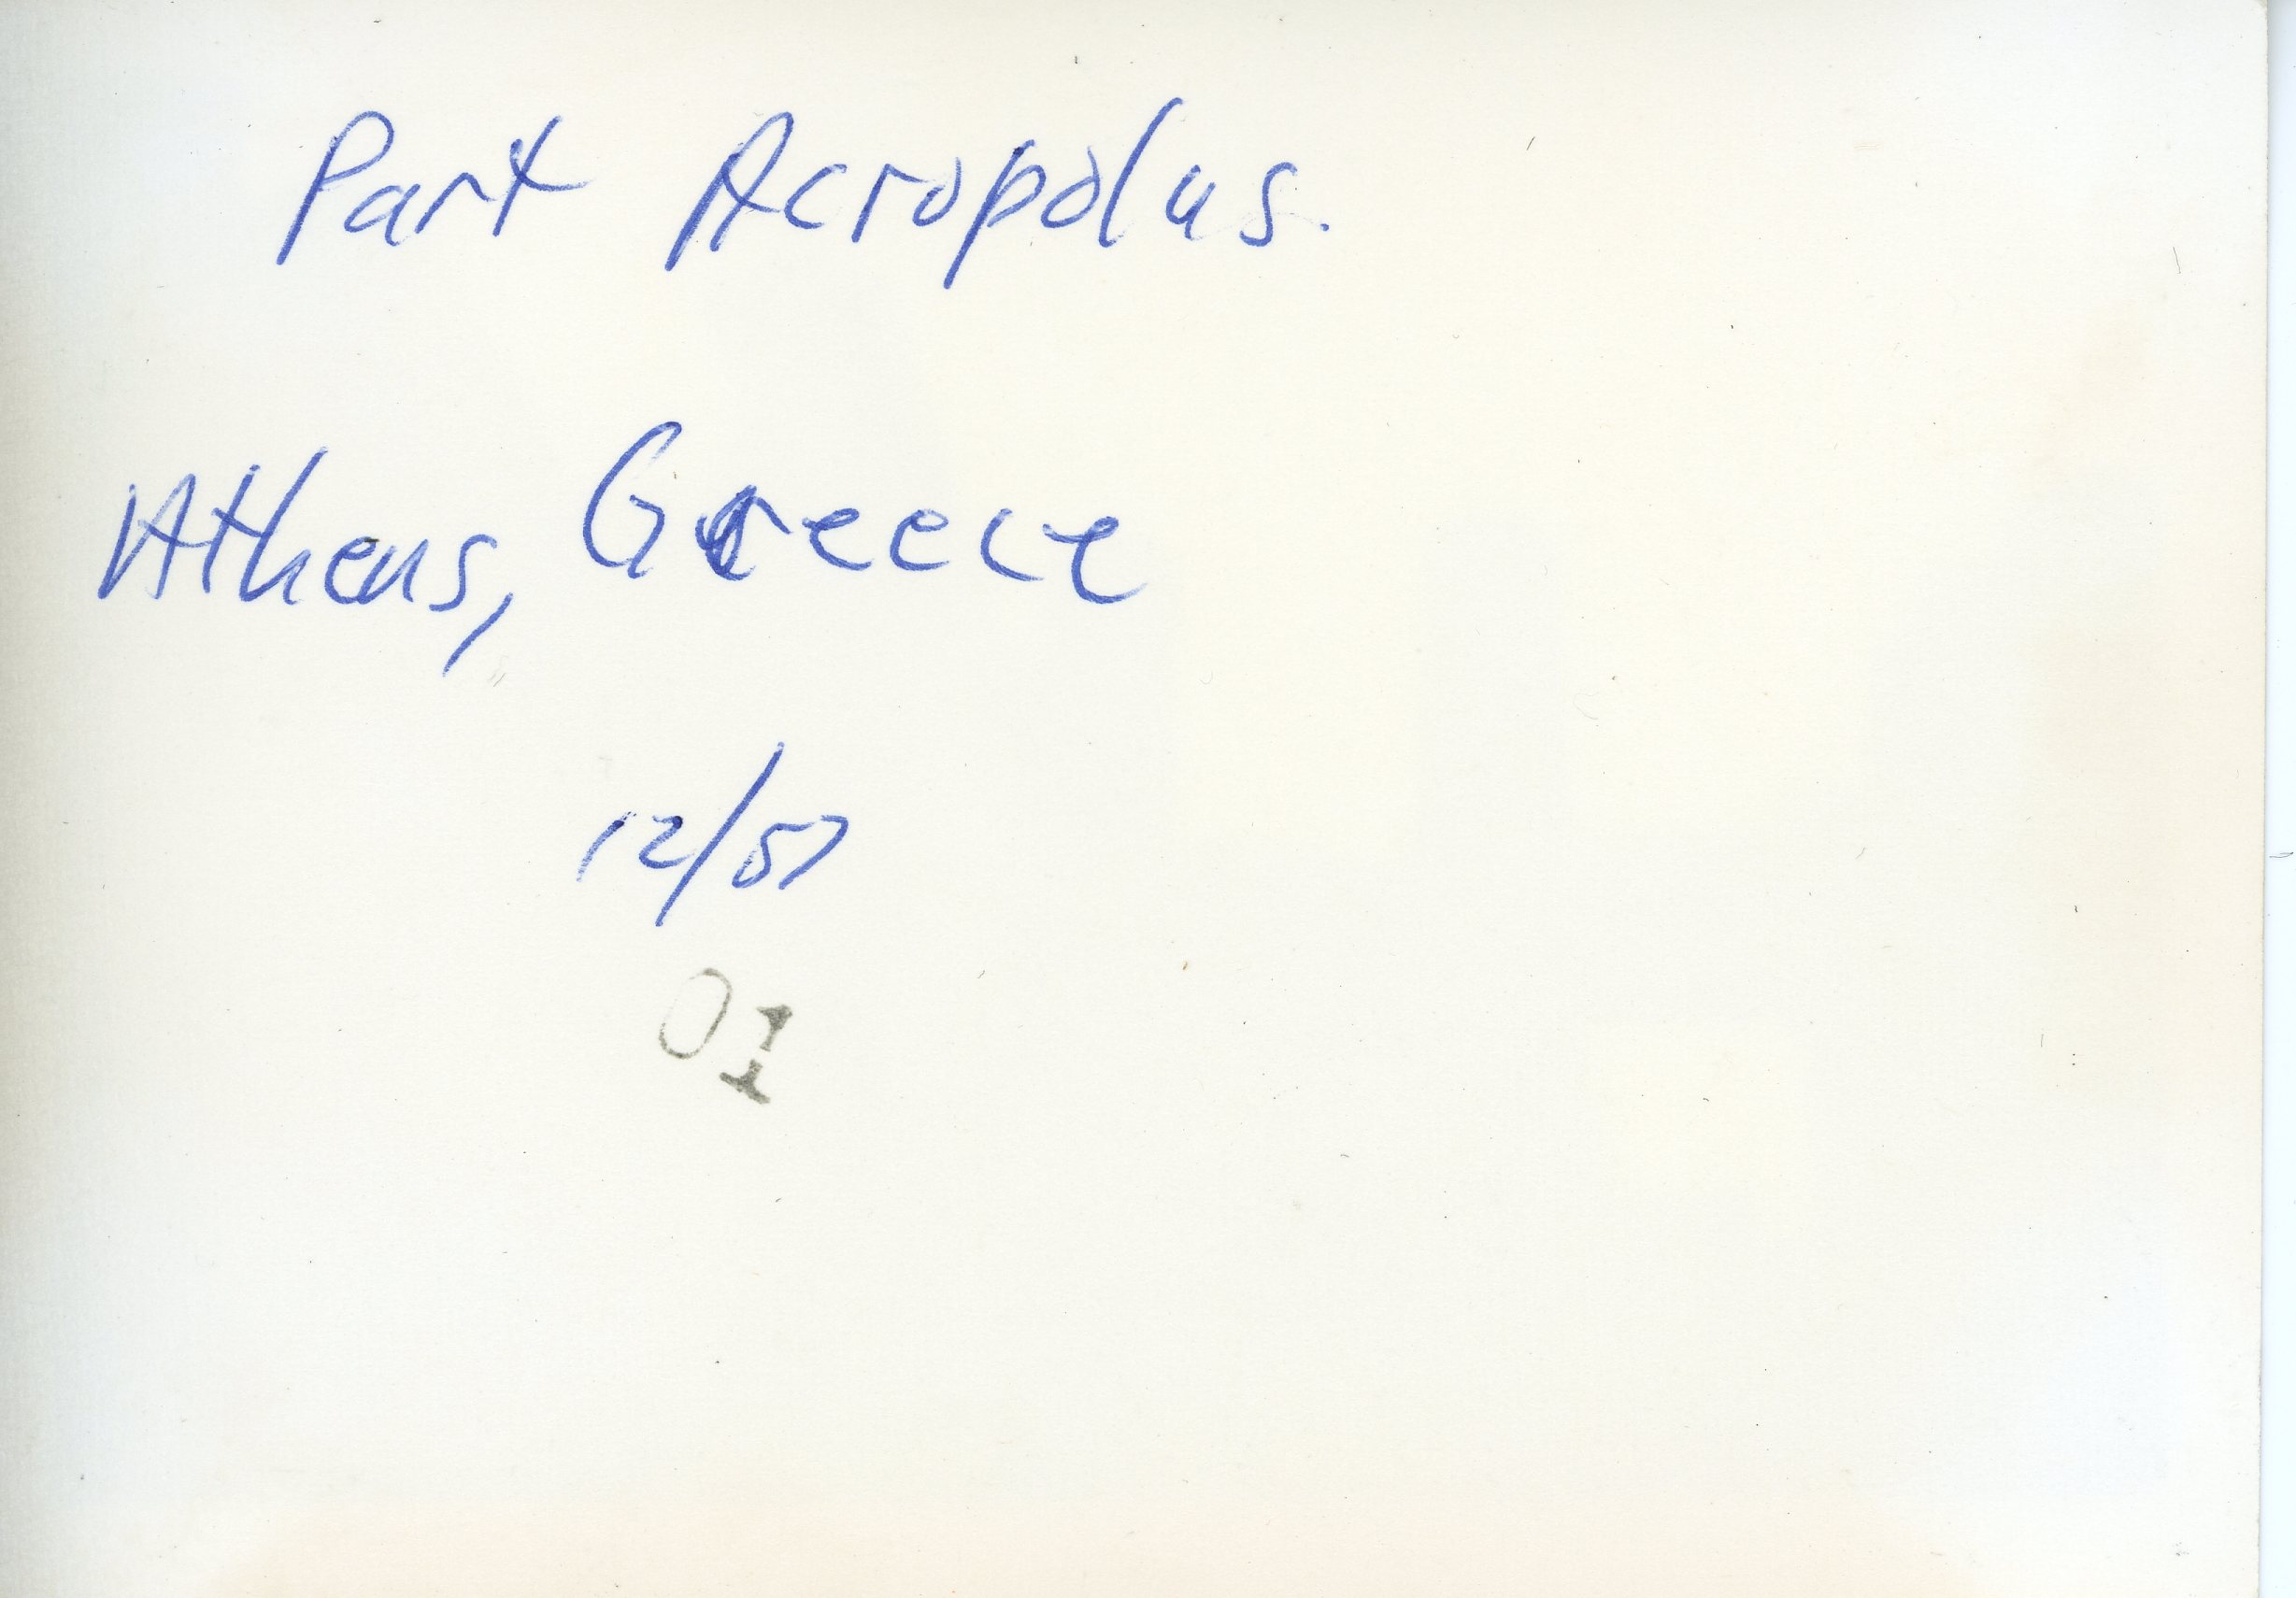 Part Acropolus.
Athens, Greece
12/57
01